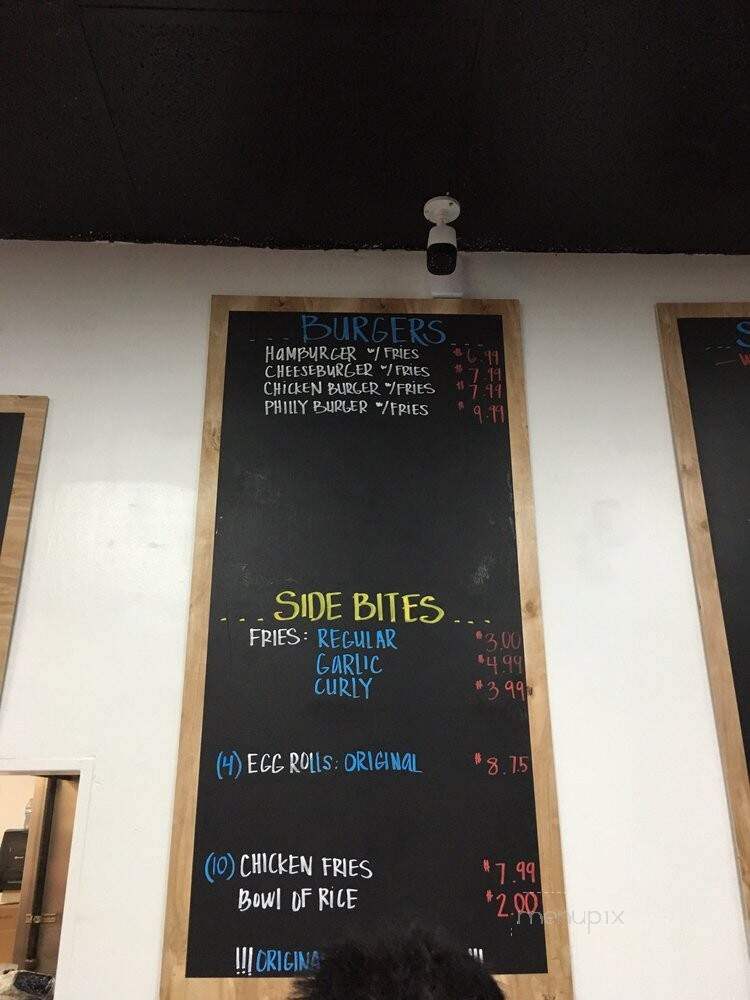 BURGERS
HAMBURGER W/FRIES $6.99
CHEESEBURGER W/FRIES $7.99
CHICKEN BURGER W/FRIES $7.99
PHILLY BURGER W/FRIES $9.99
SIDE BITES
FRIES: REGULAR $3.00
GARLIC $4.99
CURLY $3.99
(4) EGG ROLLS: ORIGINAL $8.75
(10) CHICKEN FRIES $7.99
BOWL OF RICE $2.00
menupix
!!! ORIGINA !!!